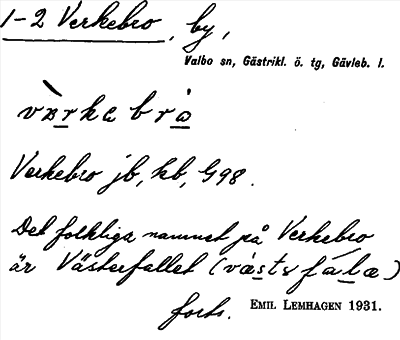 1-2 Verkebro, by,
Valbo sn, Gästrikl. ö. tg, Gävleb. l.
Verkebro jb, kb, G98.
Det folkliga namnet på Verkebro
är Västerfallet (
forts. EMIL LEMHAGEN 1931.